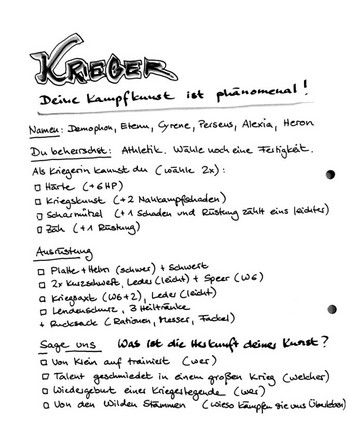 KRIEGER
Deine Kampfkunst ist phänomenal!
Namen: Demophon, Etenu, Cyrene, Perseus, Alexia, Heron
Du beherrschst: Athletik. Wähle noch eine Fertigkeit.
Als Kriegerin kannst du (wähle 2x):
□ Härte (+6HP)
□ Kriegskunst (+2 Nahkampfschaden)
□ Scharmützel (+1 Schaden und Rüstung zählt eins leichter)
□ Zäh (+1 Rüstung)
Ausrüstung
□ Platte + Helm (schwer) + Schwert
□ 2x Kurzschwert, Leder (leicht) + Speer (W6)
□ Kriegsaxt (W6+2), Leder (leicht)
□ Lendenschurz, 3 Heiltränke
+ Rucksack (Rationen, Messer, Fackel)
Sage uns Was ist die Herkunft deiner Kunst?
□ Von Klein auf trainiert (wer)
□ Talent geschmiedet in einem großen Krieg (welcher)
□ Wiedergeburt einer Kriegerlegende (wer)
□ Von den Wilden Stämmen (wieso kämpfen sie ums Überleben)